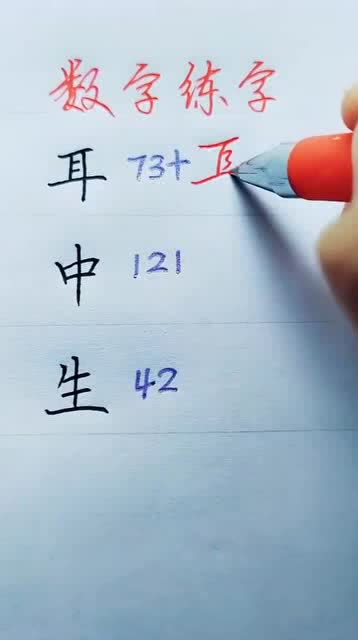 数字练字
耳 73+
中 121
生 42